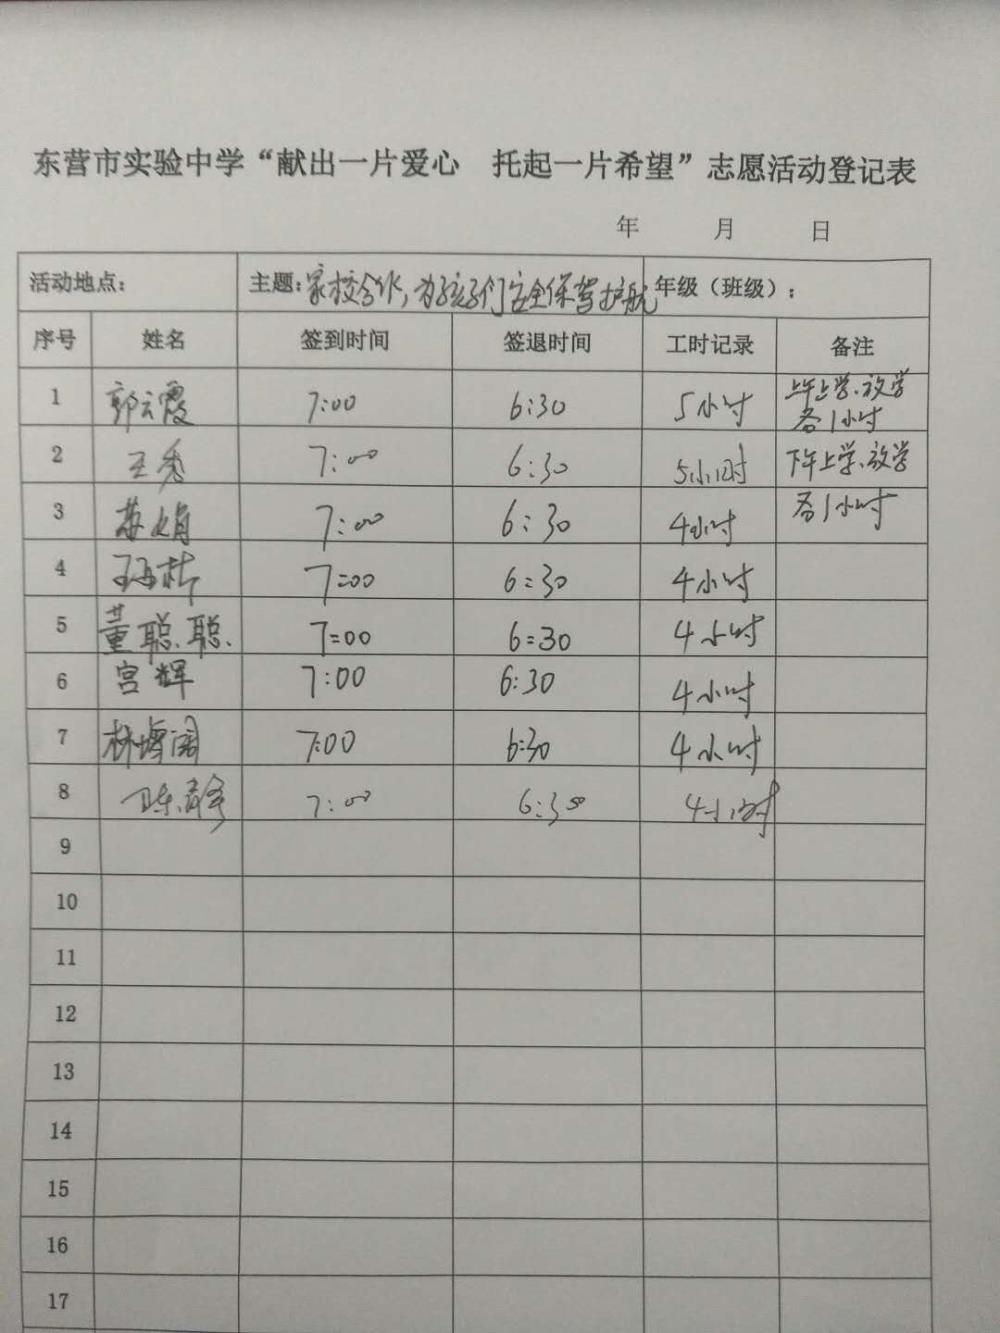 东营市实验中学“献出一片爱心 托起一片希望”志愿活动登记表
年 月 日
活动地点： 主题：家校合作，为孩子们安全保驾护航 年级（班级）：
序号 姓名 签到时间 签退时间 工时记录 备注
1 郭云霞 7:00 6:30 5小时 上午上学、放学
各1小时
2 王秀 7:00 6:30 5小时 下午上学、放学
3 苏娟 7:00 6:30 4小时 各1小时
4 7:00 6:30 4小时
5 董聪聪 7:00 6:30 4小时
6 宫辉 7:00 6:30 4小时
7 7:00 6:30 4小时
8 陈静 7:00 6:30 4小时
9
10
11
12
13
14
15
16
17